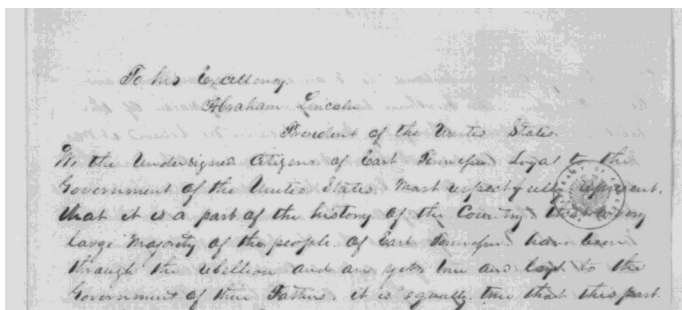 To his Excellency
Abraham Lincoln
President of the United States
We the Undersigned Citizens of East Tennessee Loyal to the
Government of the United States. Most respectfully represent.
that it is a part of the history of the Country that a very
large Majority of the people of East Tennessee have been
through the rebellion and are yet true and loyal to the
Government of their Fathers. it is equally true that this part